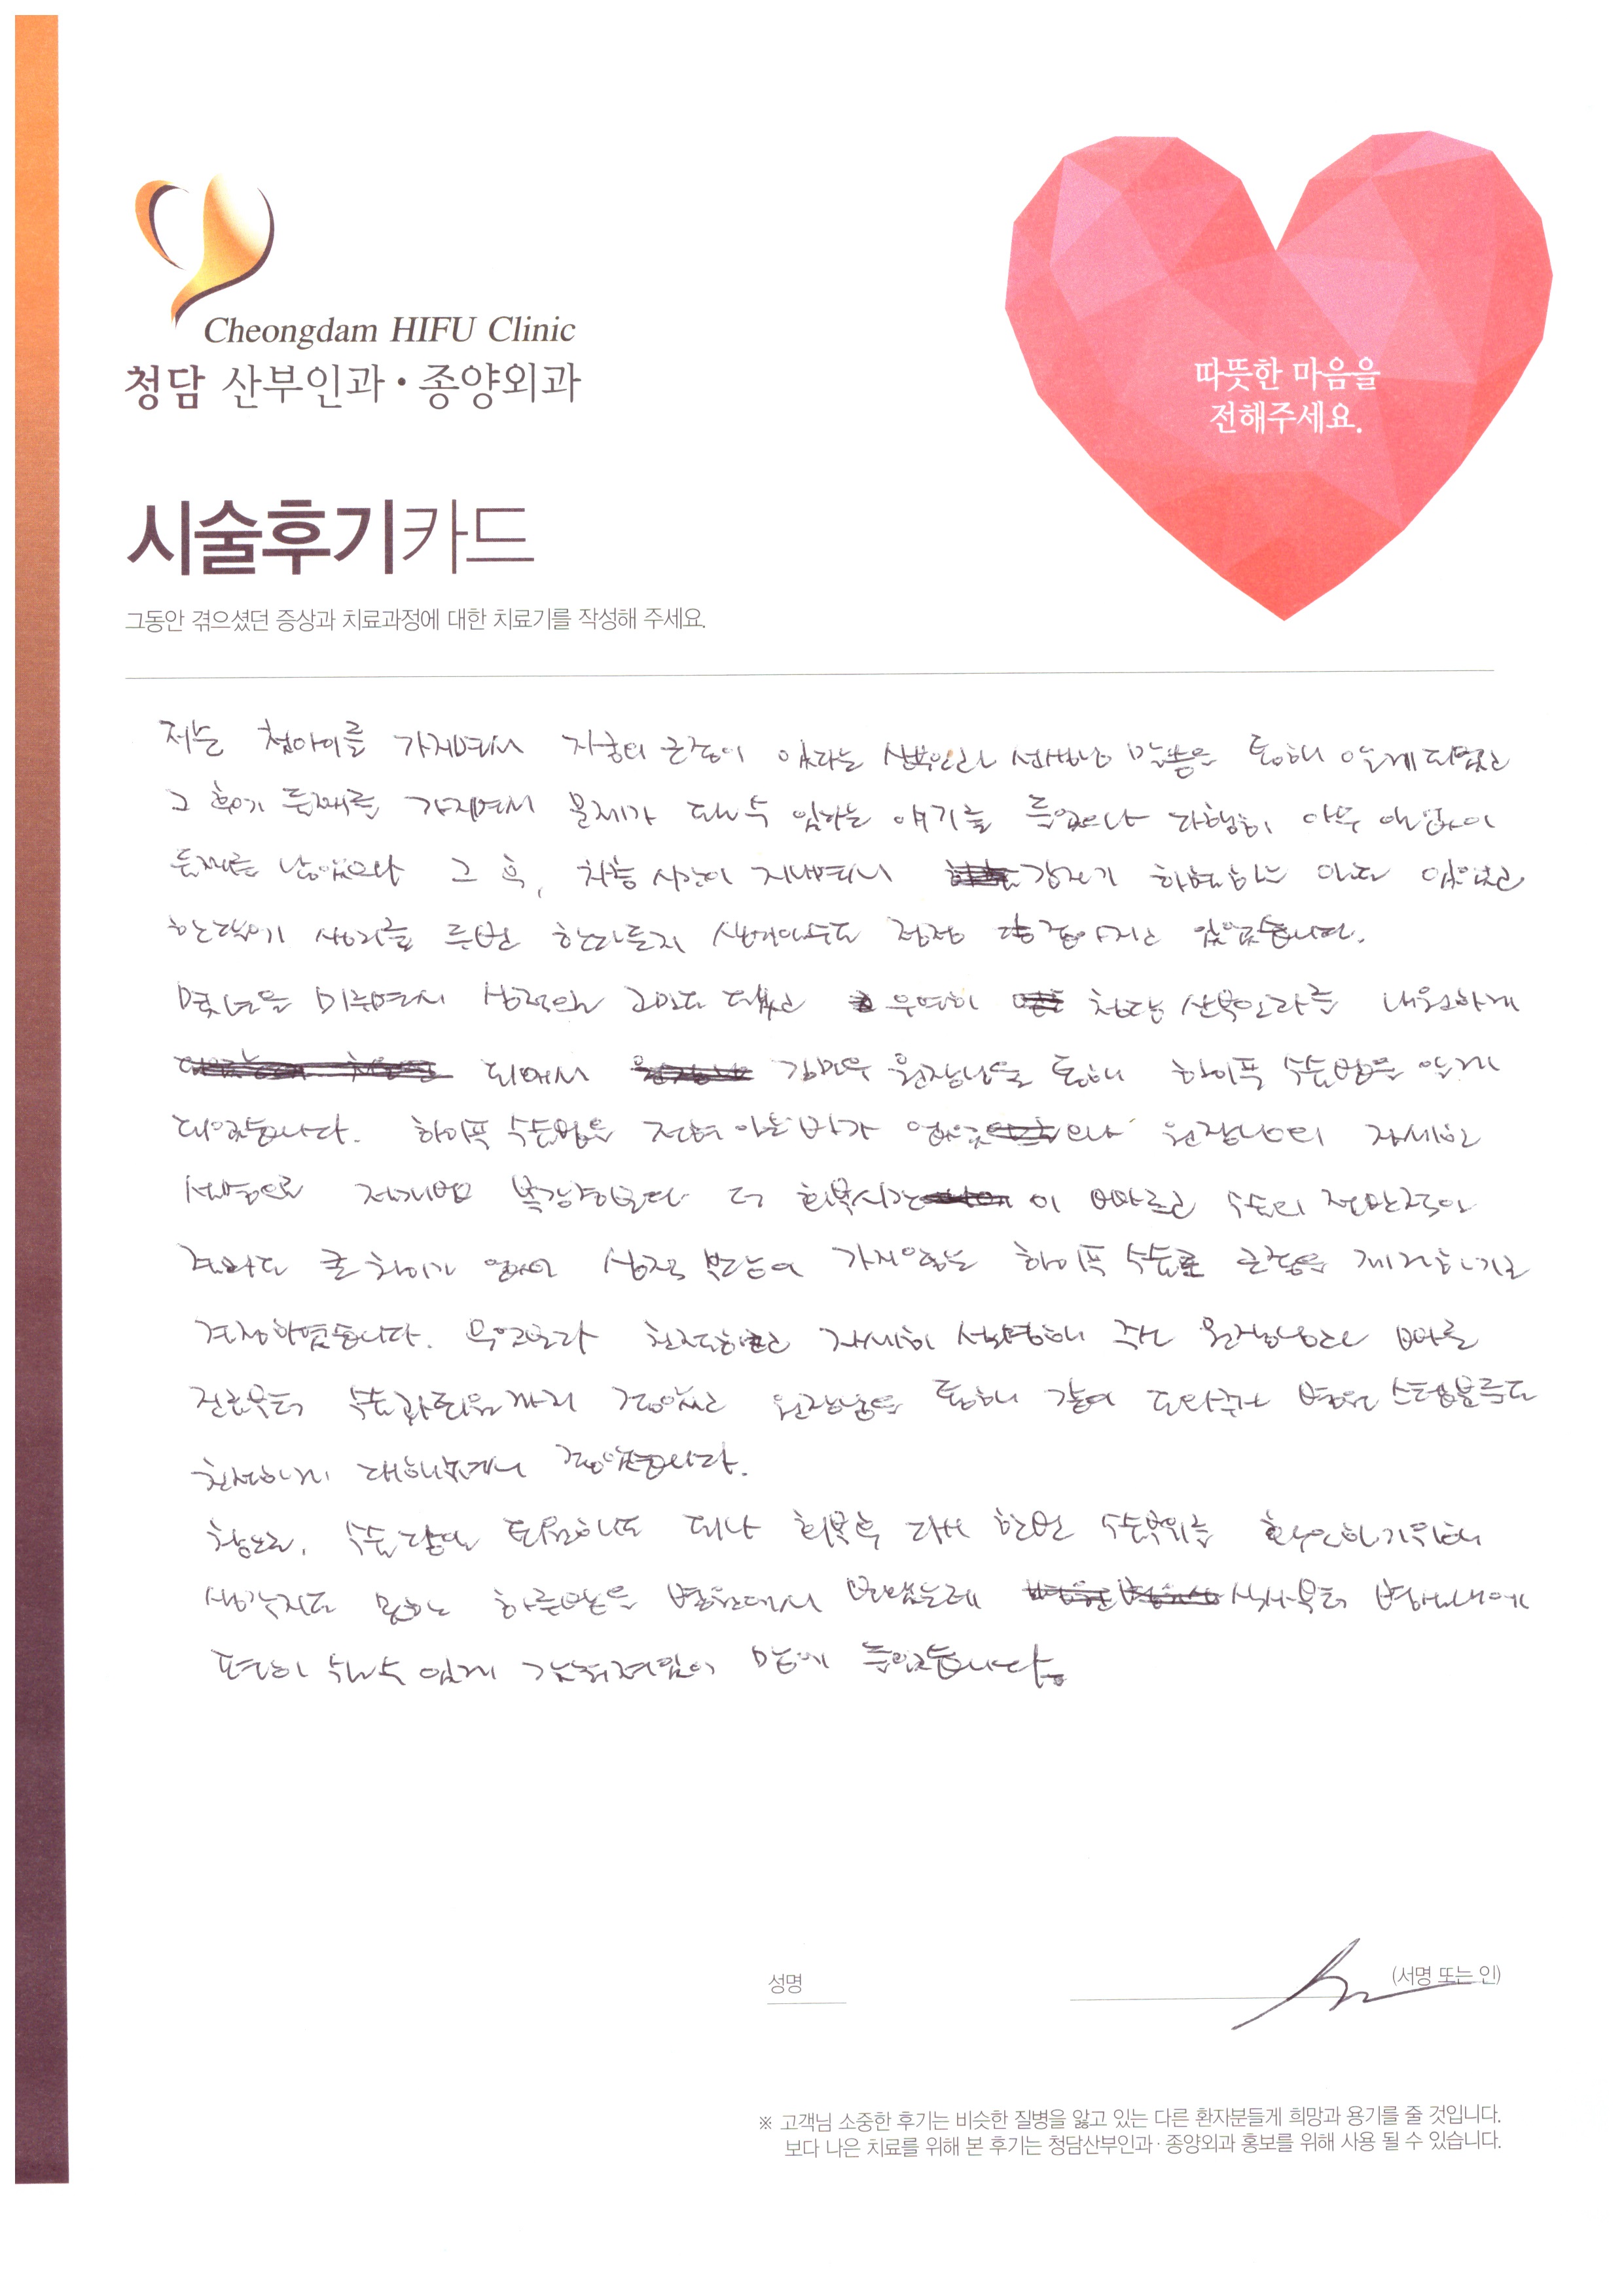 Cheongdam HIFU Clinic
청담 산부인과·종양외과
따뜻한 마음을
전해주세요.
시술후기카드
그동안 겪으셨던 증상과 치료과정에 대한 치료기를 작성해 주세요.
저는 첫아이를 가지면서 자궁에 근종이 있다는 산부인과 선생님 말씀을 통해 알게 되었고
그 후에 둘째를 가지면서 문제가 될 수 있다는 얘기를 들었으나 다행히 아무 일 없이
둘째를 낳았으나 그 후, 차츰 시간이 지나면서 갑자기 하혈하는 일도 있었고
한달에 생리를 두번 한다든지 생리양도 점점 많아지고 있었습니다.
몇년을 미루면서 심적인 고민도 됐고 우연히 청담 산부인과를 내원하게
되어서 김민우 원장님을 통해 하이푸 수술법을 알게
되었습니다. 하이푸 수술법을 전혀 아는 바가 없었으나 원장님의 자세한
설명으로 전개법 복강경보다 더 회복시간이 빠르고 수술의 전반적인
결과도 큰 차이가 없어 심적 부담이 가지않는 하이푸 수술로 근종을 제거하기로
결정하였습니다. 무엇보다 친절하고 자세히 설명해 주신 원장님과 빠른
진료부터 수술과 퇴원까지 좋았고 원장님을 통해 같이 도와주신 병원 스텝분들도
친절하게 대해주셔서 좋았습니다.
참고로, 수술 당일 퇴원해도 되나 회복후 다시 한번 수술부위를 확인하기위해
생각지도 못한 하룻밤을 병원에서 보냈는데 식사부터 병실내에
편히 쉴수 있게 갖춰져있어 맘에 들었습니다.
성명
(서명 또는 인)
※ 고객님 소중한 후기는 비슷한 질병을 앓고 있는 다른 환자분들게 희망과 용기를 줄 것입니다.
보다 나은 치료를 위해 본 후기는 청담산부인과·종양외과 홍보를 위해 사용 될 수 있습니다.